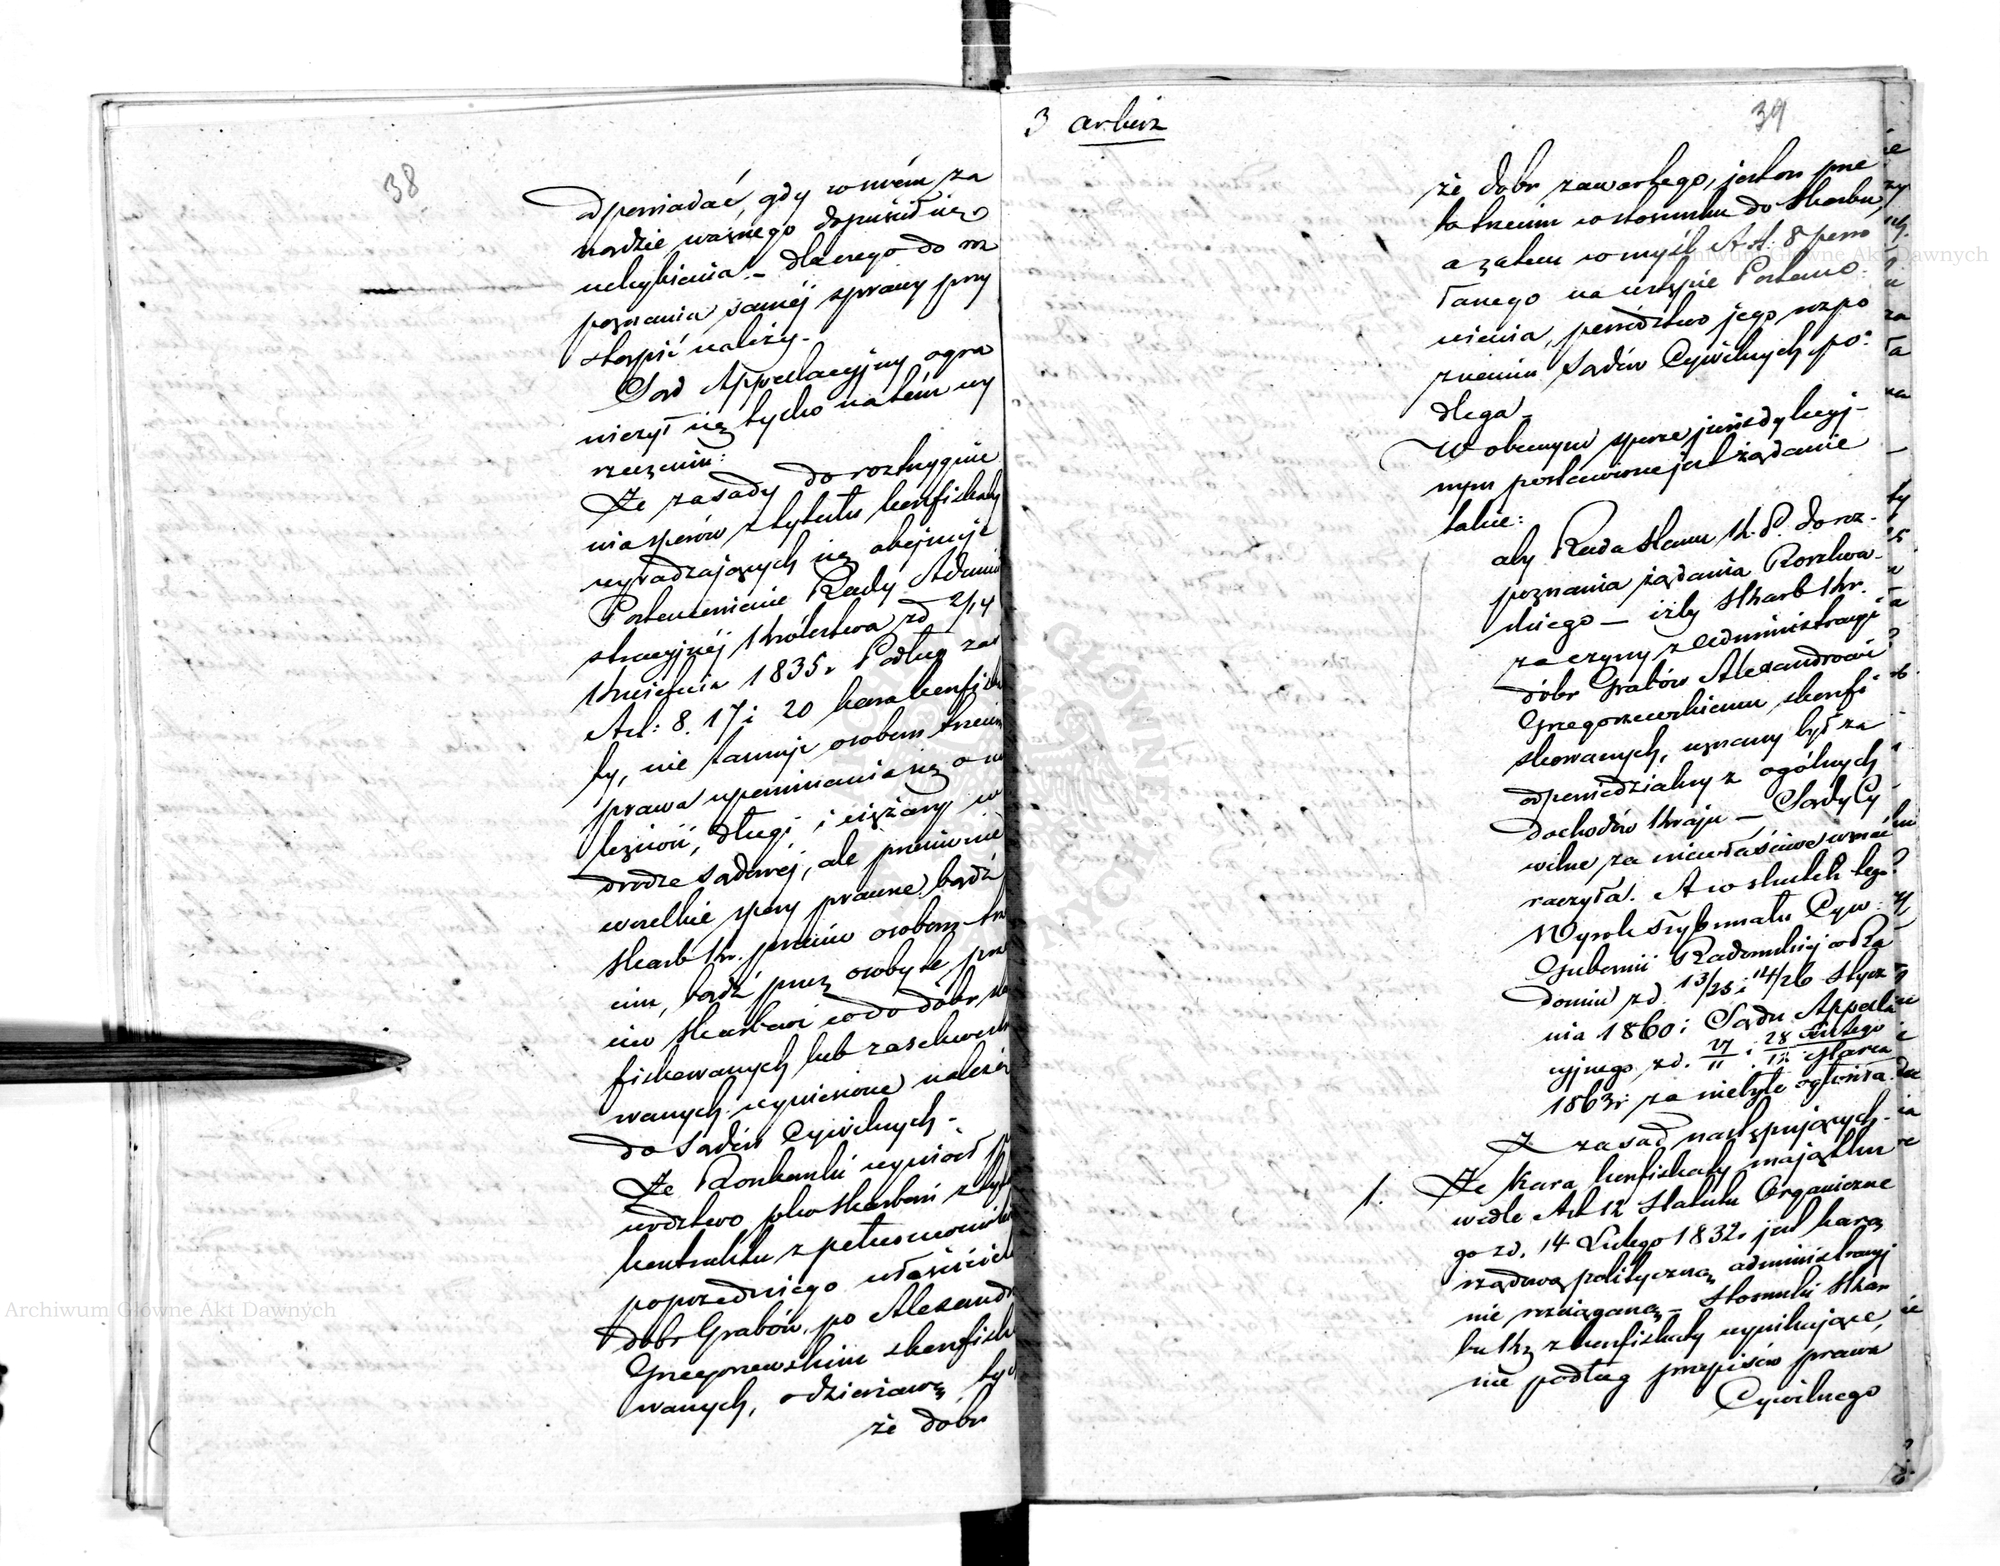 38
odpowiadać, gdy w niém za
rządzie ważnego dopuścił się
uchybienia. – dlaczego do roz
poznania saméj sprawy przy
stąpić należy. –
Sąd Appellacyjny ogra
niczył się tylko na tém wy
rzeczeniu:
Że zasady do rozstrzygnie
nia sporów z tytułu konfiskaty
wyradzających się obejmuje
Postanowienie Rady Admini
stracyjnéj Królestwa z d 2/14
Kwietnia 1835 r Podług zaś
Art: 8. 17 i 20 kara konfiska
ty, nie tamuje osobom trzecim
prawa upominania się o na
leżność, długi i ciężary w
drodze sądowéj, ale przeciwnie
wszelkie spory prawne bądź
Skarb Kr. przeciw osobom trze
cim, bądź przez osoby te prze
ciw Skarbowi co do dóbr skon
fiskowanych lub zasekwestro
wanych wywiedzione należą
do Sądów Cywilnych –
Że Roszkowski wywiódł po
wództwo jako Skarbowi z tytułu
kontraktu z pełnomocnikiem
poprzedniego właściciela
dóbr Grabów, po Alexandrze
Grzegorzewskim skonfisko
wanych, o dzierżawę tych
że dóbr
3 arkusz
39
że dóbr zawartego, jest on prze
to trzecim w stosunku do Skarbu,
a zatem w myśl Art. 8 powo
łanego na wstępie Postano:
wienia, powództwo jego rozpo
znaniu Sądów Cywilnych po:
dlega –
W obecnym sporze jurisdykcyj–
nym postawione jest żądanie
takie:
aby Rada Stanu K. P. do roz–
poznania żądania Roszkow–
skiego – iżby Skarb Kr.
za czyny z Administracyi
dóbr Grabów Alexandrowi
Grzegorzewskiemu skonfi
skowanych, uznany był za
odpowiedzialny z ogólnych
dochodów Kraju – Sądy Cy
wilne za niewłaściwe uznać
raczyła. A w skutek tego
Wyrok Trybunału Cyw:
Gubernii Radomskiéj w Ra
domiu z d. 13/25 i 14/26 Stycz
nia 1860 i Sądu Appella
cyjnego z d. 27/11 i 28 Lutego/12 Marca
1863 r za niebyłe ogłosiła.
Z zasad następujących.
1. Że Kara konfiskaty majątku
wedle Art 12 Statutu Organiczne
go z d. 14 Lutego 1832 r jest karą
rządową polityczną administracyj
nie rozciąganą – Stosunki Skar
bu Kr z konfiskaty wynikające,
nie podług przepisów prawa
Cywilnego